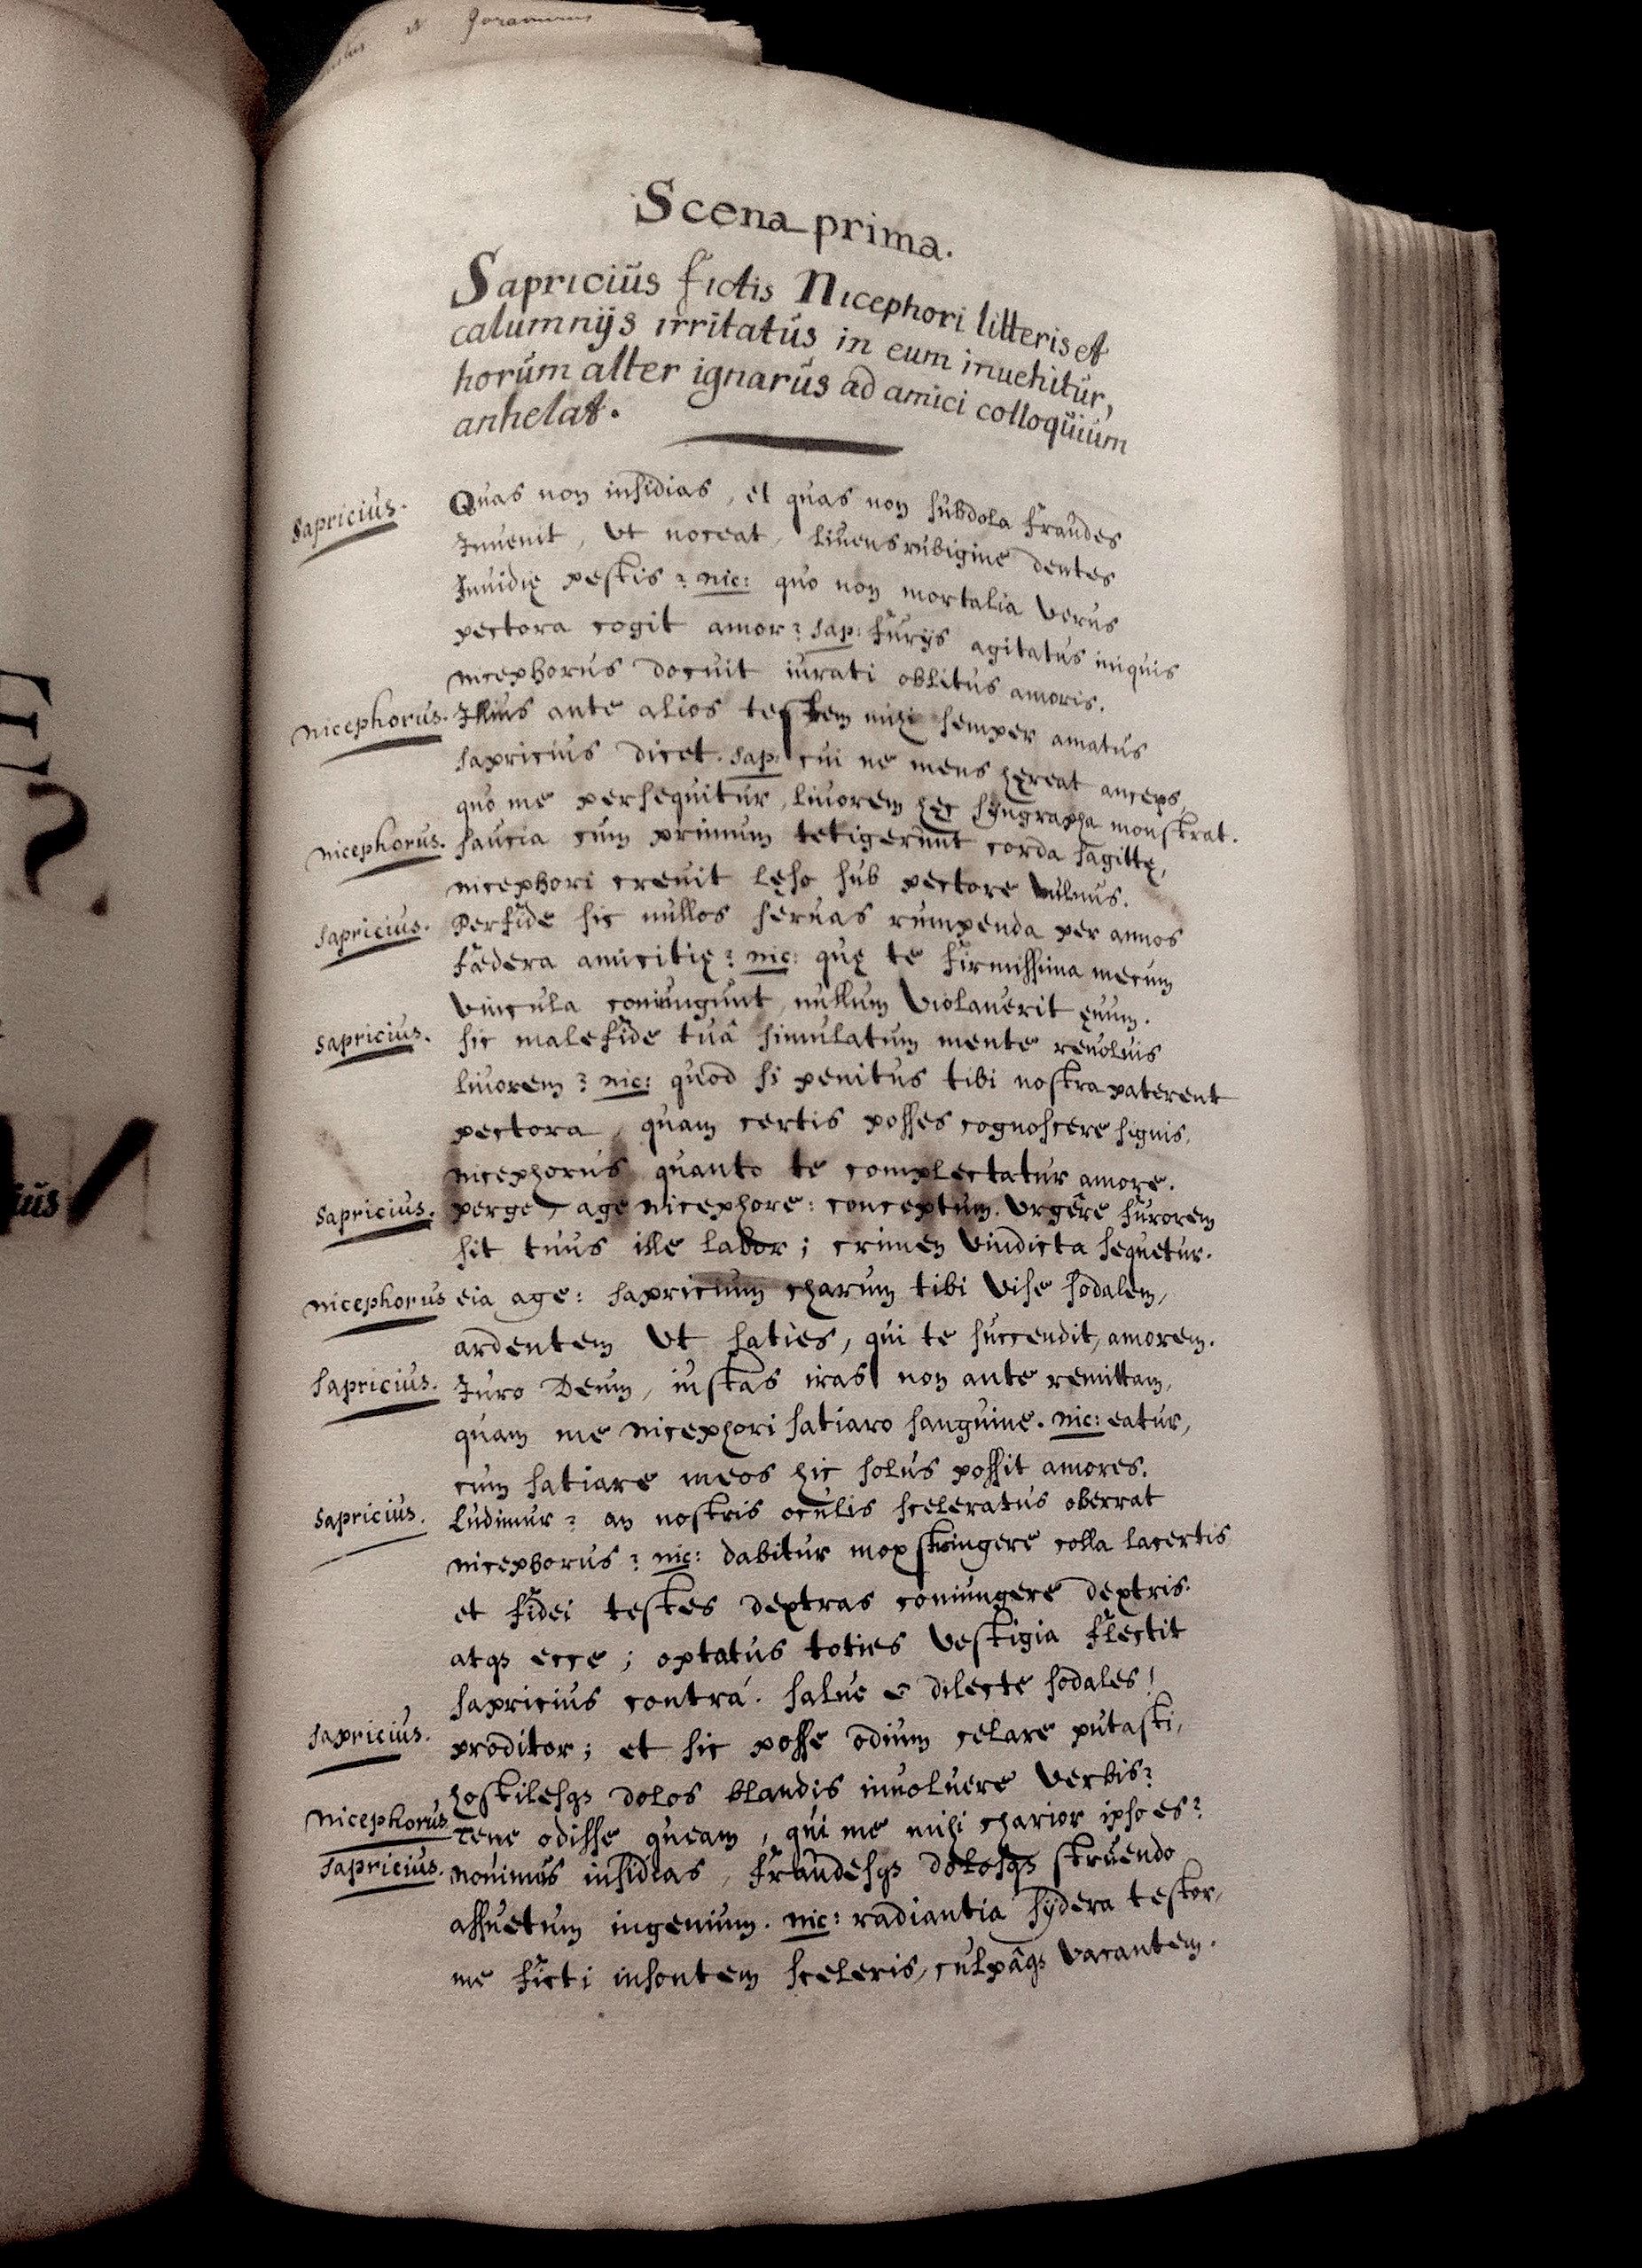 et Joramurus
Scena prima.
Sapriciús fictis Nicephori litteris et
calumnijs irritatús in eum inuehitúr,
horúm alter ignarús ad amici colloqúium
anhelat.
Sapriciús. Quas non insidias, et quas non súbdola fraúdes
Inuenit, ut noceat, liuens rúbigine dentes
Inuidię pestis? nic: quo non mortalia verus
pectora cogit amor? Sap: furijs agitatus iniquis
nicephorus docuit iurati oblitus amoris.
Nicephorús. Illius ante alios testem mihi semper amatus
sapricius dicet. Sap: cui ne mens hęreat anceps,
quo me persequitúr, liuorem hęc sÿngrapha monstrat.
Nicephorus. saucia cúm primum tetigerúnt corda sagittę,
nicephori creuit lęso súb pectore vulnus.
Sapriciús. Perfide sic nullos seruas rúmpenda per annos
fædera amicitię? nic: quę te firmissima mecum
vincula coniungunt, nullum violauerit ęuum.
Sapriciús. sic malefide tuâ simulatum mente reuoluis
liuorem? nic: quod si penitus tibi nostra paterent
pectora, quam certis posses cognoscere signis,
nicephorus quanto te complectatur amore.
Sapriciús. perge, age nicephore: conceptum urgêre fúrorem
sit tuus ille labor; crimen vindicta sequetur.
Nicephorus eia age: sapricium charum tibi vise sodalem,
ardentem ut saties, qui te succendit, amorem.
Sapriciús. Juro Deum, iustas iras non ante remittam,
quam me nicephori satiaro sanguine. nic: eatur,
cum satiare meos hic solus possit amores.
Sapriciús. Lúdimur? an nostris ocúlis sceleratus oberrat
nicephorus? nic: dabitur mox stringere colla lacertis
et fidei testes dextras coniungere dextris.
atqȝ ecce; optatus toties vestigia flectit
sapricius contrá. salue ô dilecte sodales!
Sapriciús. proditor; et sic posse odium celare putasti,
hostilesqȝ dolos blandis inuoluere verbis?
Nicephorús Tene odisse queam, qui me mihi charior ipso es?
Sapriciús. nouimús insidias, fraúdesqȝ dolosqȝ struendo
assuetum ingenium. nic: radiantia sÿdera testor,
me ficti insontem sceleris, culpâqȝ vacantem.
iús